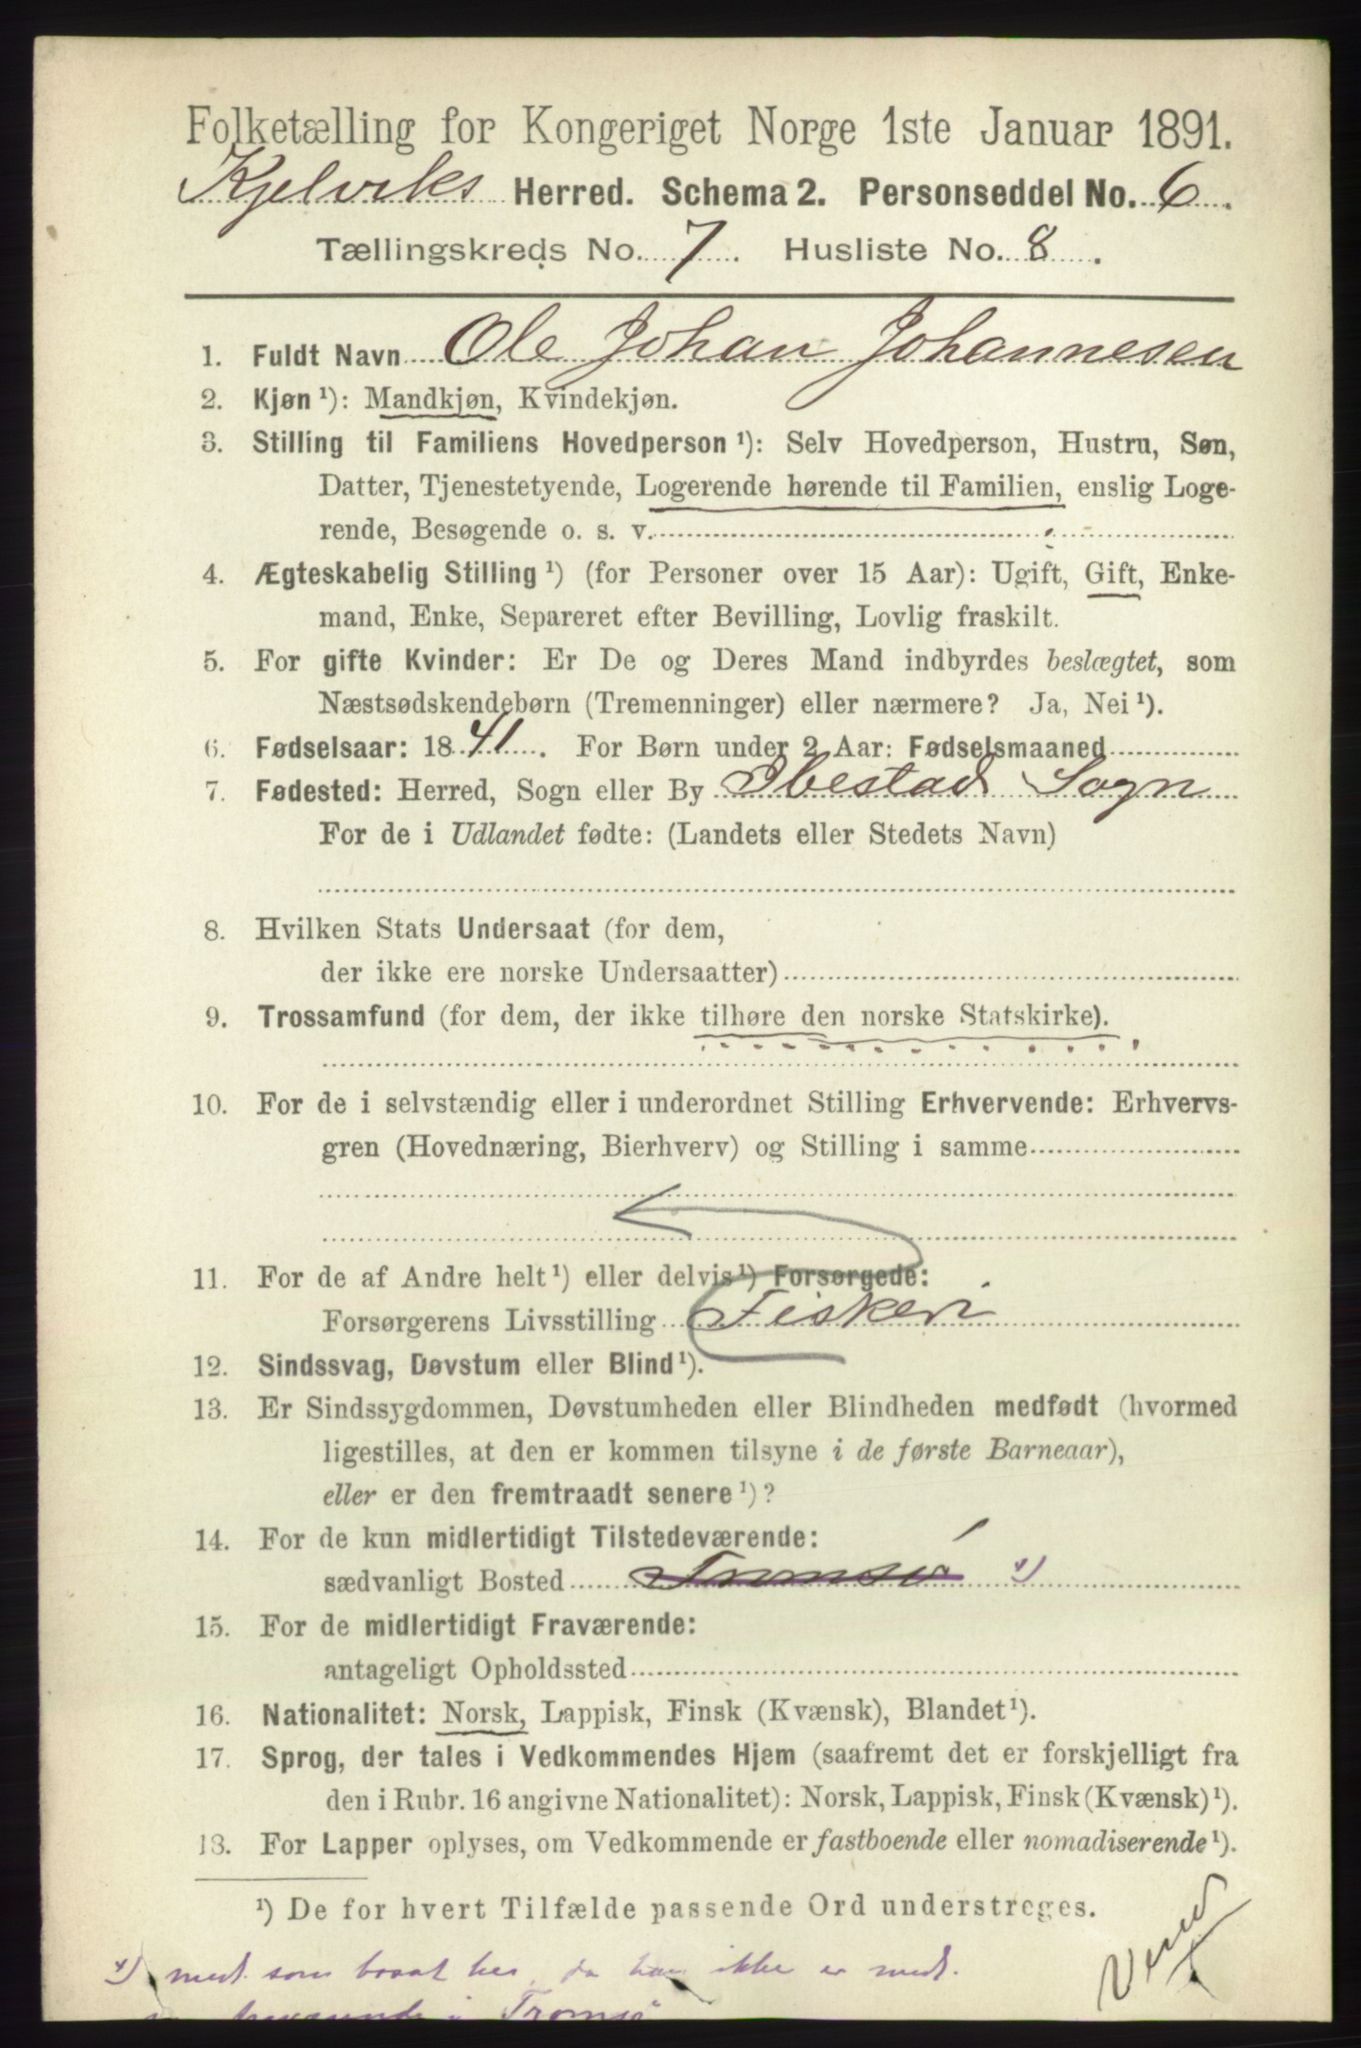 Folketælling for Kongeriget Norge 1ste Januar 1891.
Kjelviks Herred. Schema 2. Personseddel No. 6.
Tællingskreds No. 7. Husliste No. 8.
1. Fuldt Navn Ole Johan Johannesen
2. Kjøn ¹): Mandkjøn, Kvindekjøn.
3. Stilling til Familiens Hovedperson ¹): Selv Hovedperson, Hustru, Søn,
Datter, Tjenestetyende, Logerende hørende til Familien, enslig Loge-
rende, Besøgende o. s. v.
4. Ægteskabelig Stilling ¹) (for Personer over 15 Aar): Ugift, Gift, Enke-
mand, Enke, Separeret efter Bevilling, Lovlig fraskilt.
5. For gifte Kvinder: Er De og Deres Mand indbyrdes beslægtet, som
Næstsødskendebørn (Tremenninger) eller nærmere? Ja, Nei ¹).
6. Fødselsaar: 1841. For Børn under 2 Aar: Fødselsmaaned
7. Fødested: Herred, Sogn eller By Ibestad Sogn
For de i Udlandet fødte: (Landets eller Stedets Navn)
8. Hvilken Stats Undersaat (for dem,
der ikke ere norske Undersaatter)
9. Trossamfund (for dem, der ikke tilhøre den norske Statskirke).
10. For de i selvstændig eller i underordnet Stilling Erhvervende: Erhvervs-
gren (Hovednæring, Bierhverv) og Stilling i samme
11. For de af Andre helt ¹) eller delvis ¹) Forsørgede:
Forsørgerens Livsstilling Fiskeri
12. Sindssvag, Døvstum eller Blind ¹).
13. Er Sindssygdommen, Døvstumheden eller Blindheden medfødt (hvormed
ligestilles, at den er kommen tilsyne i de første Barneaar),
eller er den fremtraadt senere ¹)?
14. For de kun midlertidigt Tilstedeværende:
sædvanligt Bosted Tromsø
15. For de midlertidigt Fraværende:
antageligt Opholdssted
16. Nationalitet: Norsk, Lappisk, Finsk (Kvænsk), Blandet ¹).
17. Sprog, der tales i Vedkommendes Hjem (saafremt det er forskjelligt fra
den i Rubr. 16 angivne Nationalitet): Norsk, Lappisk, Finsk (Kvænsk) ¹).
13. For Lapper oplyses, om Vedkommende er fastboende eller nomadiserende ¹).
¹) De for hvert Tilfælde passende Ord understreges.
med. som bosat her, da han ikke er med.
i Tromsø